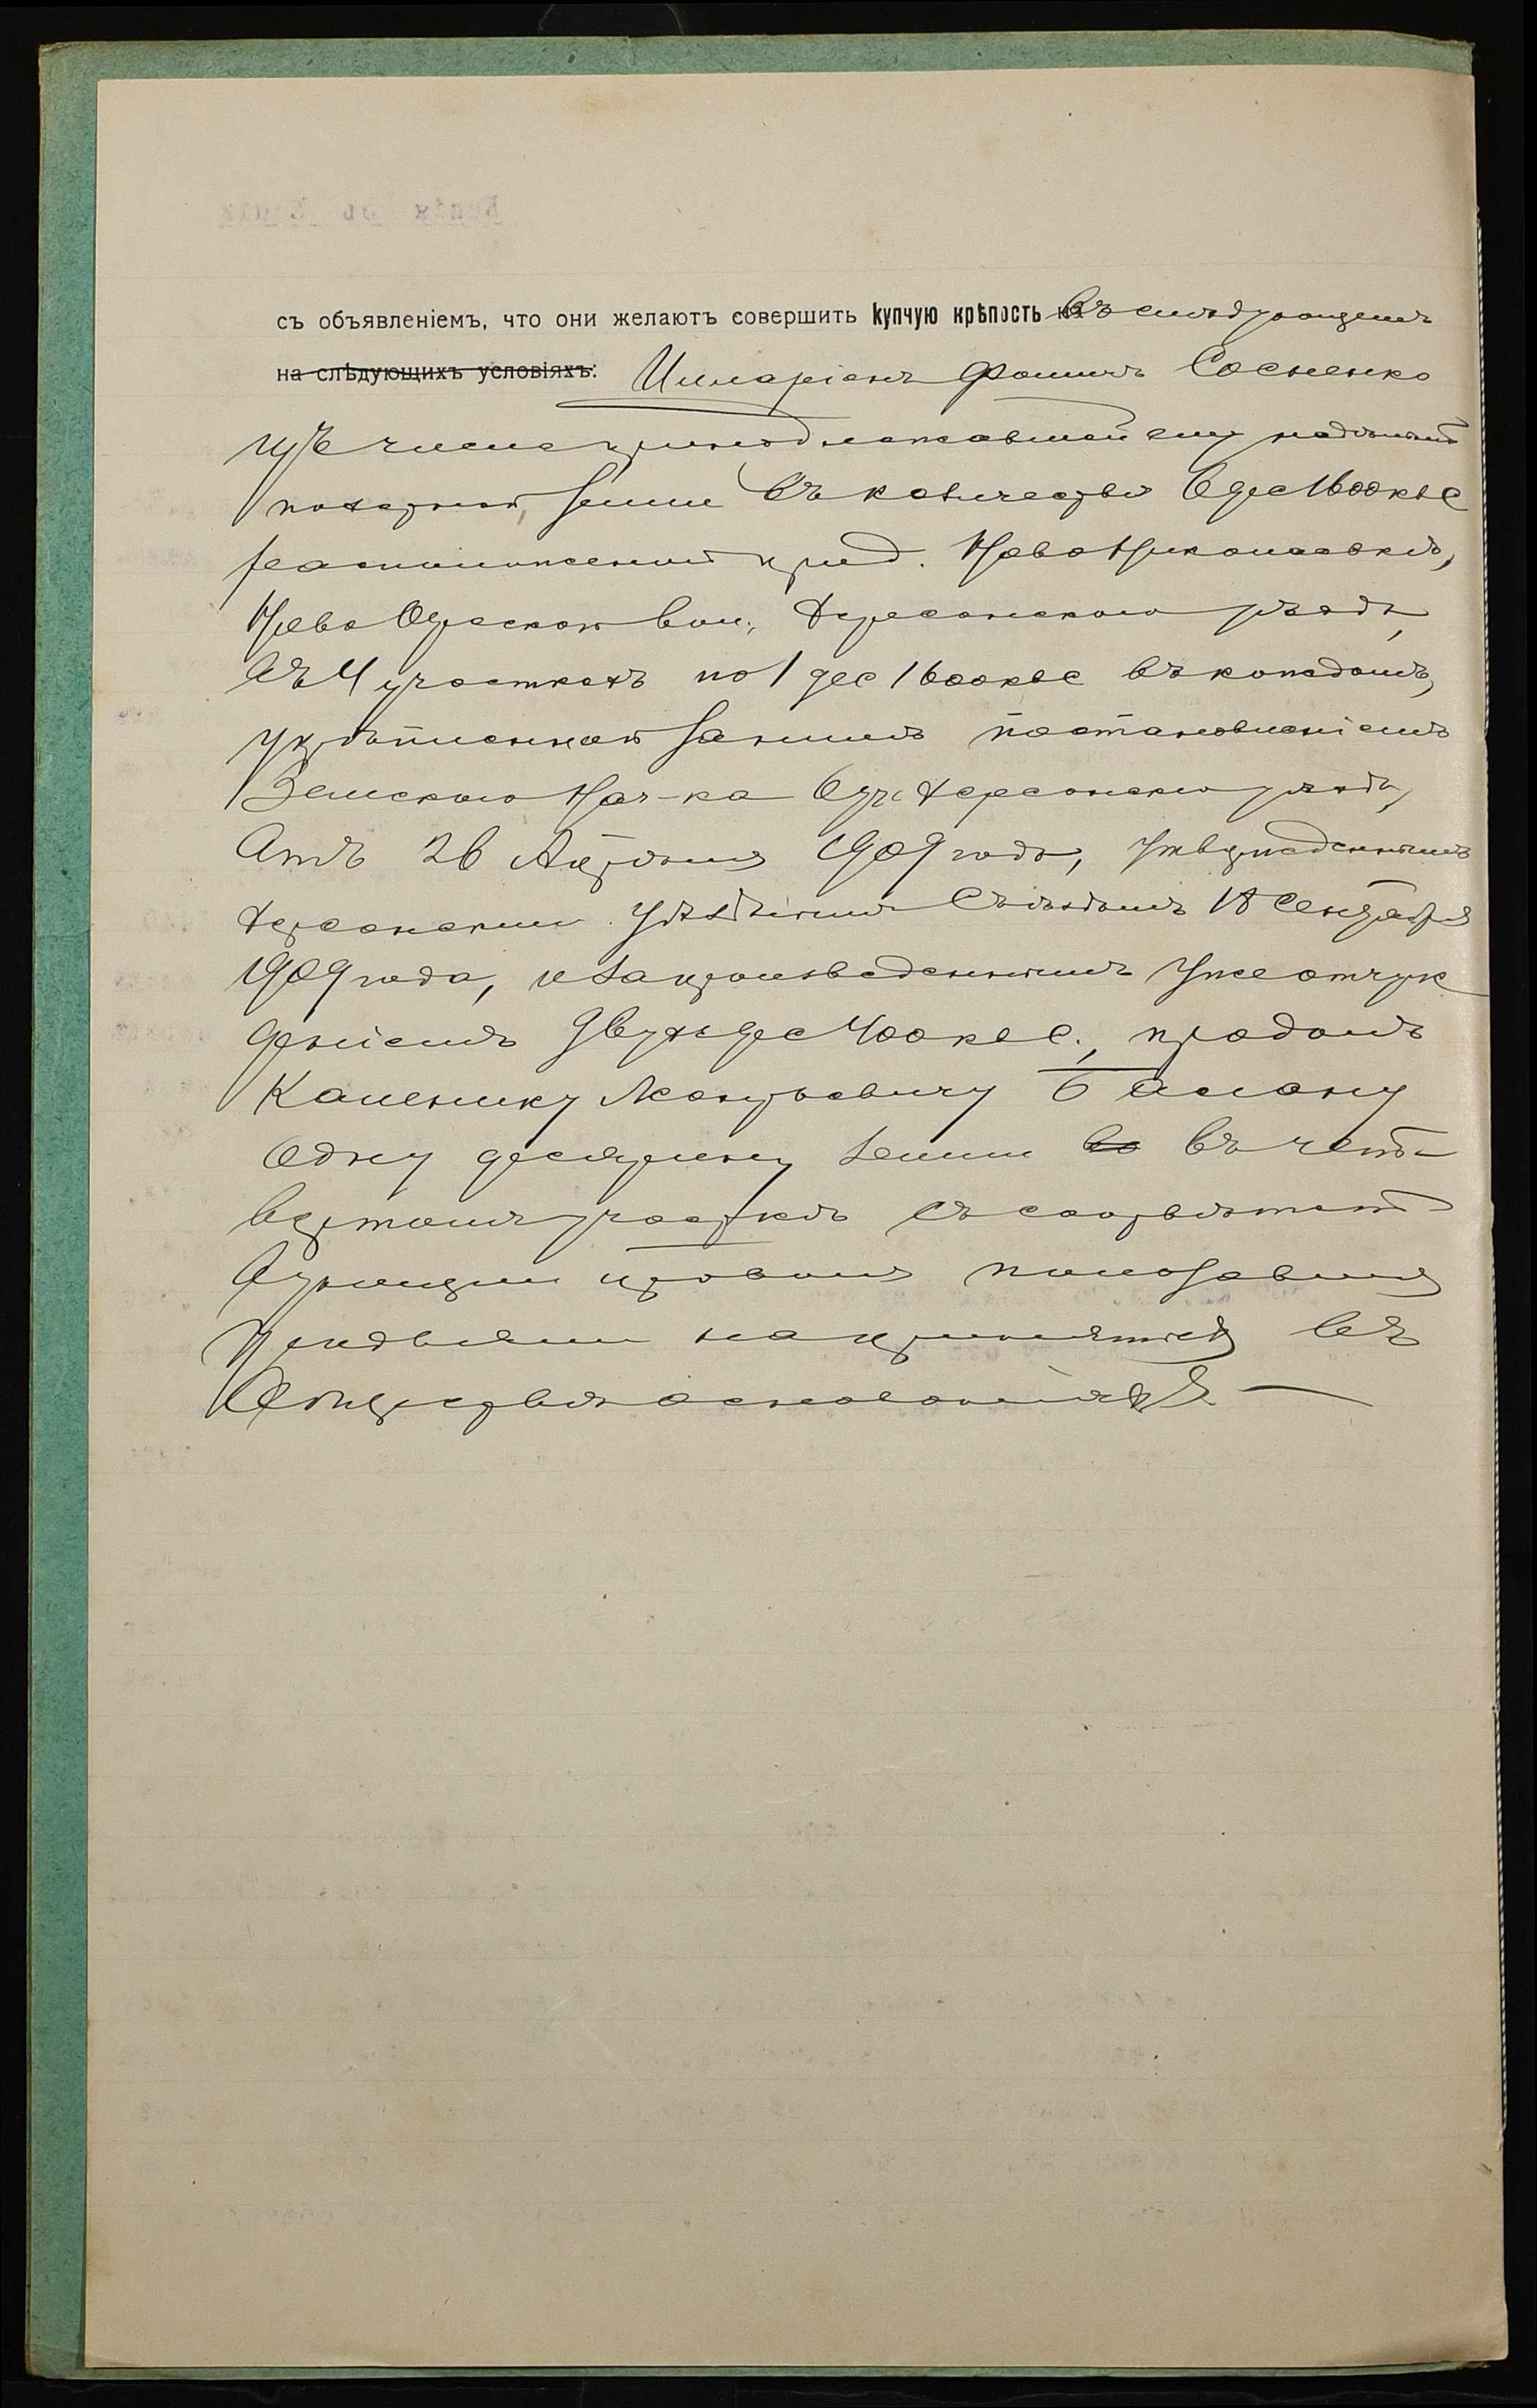 съ объявленіемъ, что они желаютъ совершить купчую крѣпость на въ слѣдующемъ
на слѣдующихъ условіяхъ: Илларіонъ Фомичъ Сосненко
изъ числа принадлежавшей ему надѣльной
пахатной земли въ количествѣ 6 дес 1600 кв с
расположенной при д. Ново Николаевкѣ,
Ново Одесской вол., Херсонскаго уѣзда,
въ 4 участкахъ по 1 дес 1600 кв с въ каждомъ,
укрѣпленной за нимъ постановленіемъ
Земскаго Нач-ка 6 уч. Херсонскаго уѣзда,
отъ 26 Апрѣля 1909 года, утвержденнымъ
Херсонскимъ Уѣзднымъ Съѣздомъ 18 Сентября
1909 года, и за произведеннымъ уже отчуж
деніемъ двухъ дес 400 кв с., продалъ
Каленику Лебедевичу
одну десятину земли во въ чет-
вертомъ участкѣ съ соотвѣтст
вующимъ правомъ пользованія
угодьями на принятыхъ въ
Обществѣ основаніяхъ —